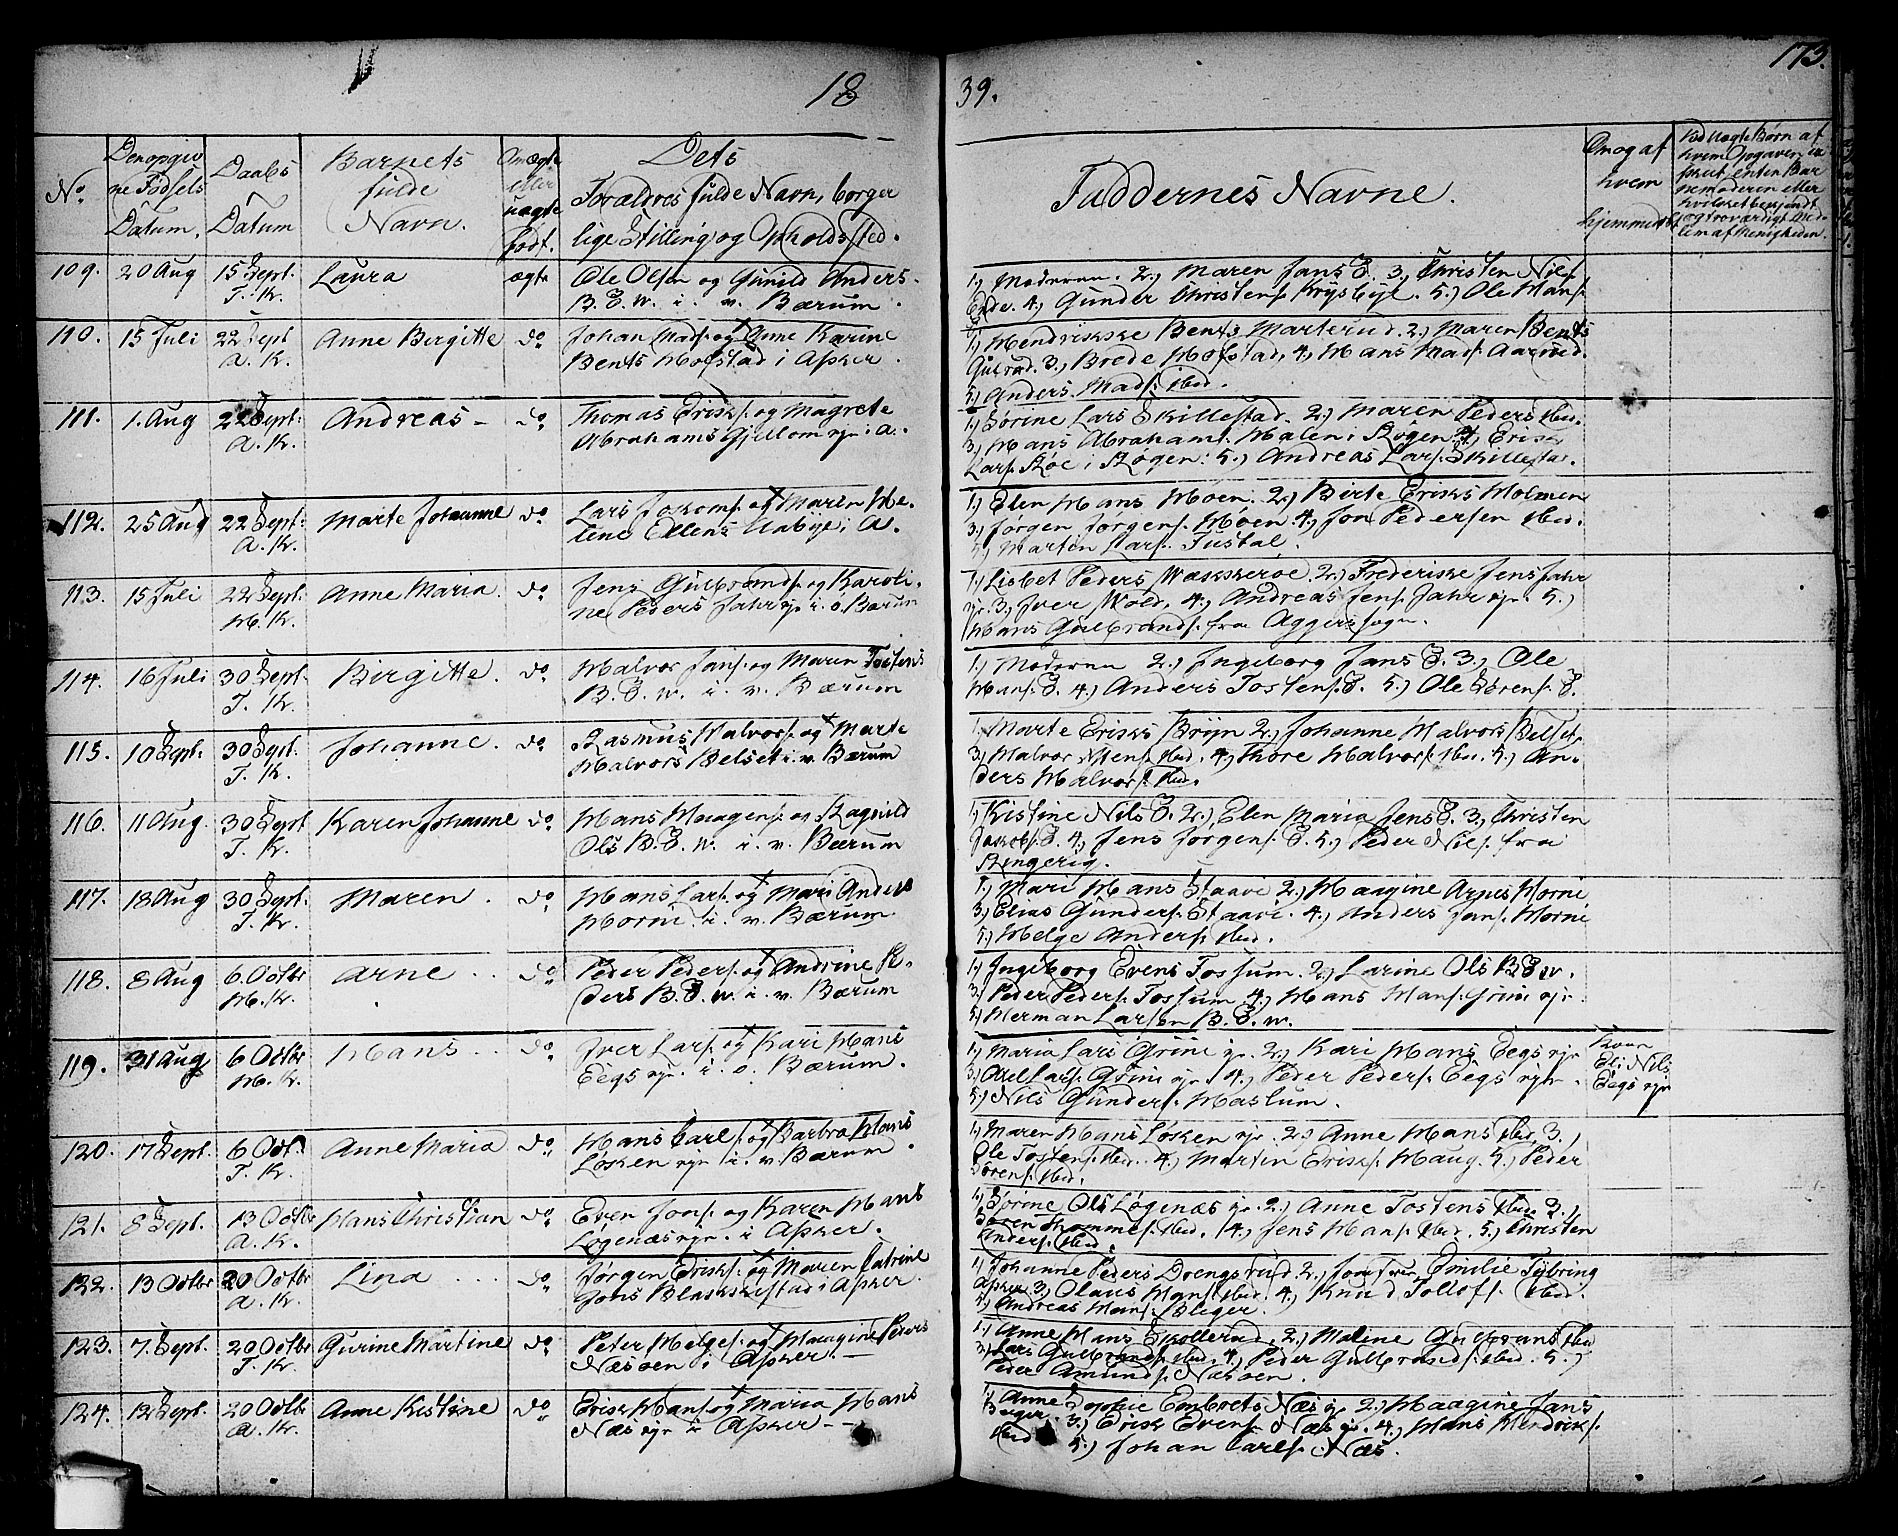 173.
18 39.
No
Den opgiv
ne Födsels
Datum.
Daabs
Datum
Barnets
fulde
Navn.
Om ægte
eller
uægte
født.
Dets
Forældres fulde Navn, borger
lige Stilling og Opholdssted.
Faddernes Navne.
Om og af
hvem
hjemmedøbt
109. 20 Aug 15 Sept. Laura ægte Ole Olsen og Gunild Anders
T. Kr. B. E. W. i. v. Bærum.
1., Moderen. 2., Maren Jans E. 3, Christen Nils
Ende. 4., Gunder Christens. 5.) Ole Hans.
110. 15 Juli 22 Sept Anne Birgitte do Johan Mads. og Anne Karine
A. Kr. Bents Hofstad i Asker.
1, Hendrikke Bents Marterud. 2.) Maren Bents
Gulrud. 3., Brede Hofstad, 4., Hans Mads. Aarrud.
5) Anders Mads. ibid.
111. 1. Aug 22 Sept. Andreas - do Thomas Eriks. og Magrete
A. Kr. Abrahams Gjellom ejr i A.
1., Sørine Lars Skillestad. 2., Maren Peders ibid.
3., Hans Abrahams. Halen i Røgen 4, Erik
Lars. Røe i Røgen: 5.) Andreas Lars. Skillestad.
112. 25 Aug 22 Sept: Marte Johanne do Lars og Maren He-
A. Kr. lene Ellens Aabye i A.
1., Elen Hans Høen. 2.) Birte Eriks Holmen
3., Jørgen Jørgens. Høen 4., Jon Pedersen ibid.
5, Marten Lars. Tustal.
113. 15 Juli 22 Sept. Anne Maria. do Jens Gulbrands. og Karoli-
H. Kr. ne Peders Jahr ejr i. o. Bærum
1., Lisbet Peders Wækkerøe. 2., Frederikke Jens Jahr
ejr. 3., Iver Wold, 4., Andreas Jens. Jahr ejr. 5.)
Hans Gulbrands. fra Aggers sogn.
114. 16 Juli 30 Sept. Birgitte. do Halvor Jans. og Maren Tostens
T. Kr. B. E. W. i. v. Bærum
1., Moderen 2., Ingeborg Jans E. 3., Ole
Hans. E. 4., Anders Tostens. E. 5.) Ole Sørens. E.
115. 10 Sept. 30 Sept. Johanne. do Rasmus Halvors. og Marte
T. Kr. Halvors Belset i. v. Bærum
1, Marte Eriks Bryn 2., Johanne Halvors Belset,
3., Halvor ibid. 4., Thore Halvors. ibid. 5.) An-
ders Halvors. ibid.
116. 11 Aug. 30 Sept Karen Johanne do Hans Haagens. og Ragnild
T. Kr. Ols B. E. W. i. v. Bærum
1, Kistine Nils E. 2., Elen Maria Jens E. 3., Christen
Jakobs. E. 4., Jens Jørgens. E. 5., Peder Nils. fra
Ringerig.
117. 18 Aug 30 Sept. Maren. do Hans Lars. og Mari Anders
T. Kr. Horni i. v. Bærum
1., Mari Hans Staavi 2., Haagine Arnes Horni
3., Elias Gunders. Staavi. 4., Anders Jans. Horni
5., Helge Anders. ibid.
118. 8 Aug 6. Octbr Arne .. do Peder Peders. og Andrine Pe-
H. Kr. ders B. E. W. i. v. Bærum
1., Ingeborg Evens Tossum. 2., Larine Ols B. E. W.
3., Peder Peders. Tossum 4., Hans Hans. Grini ejr.
5., Herman Larsen B. E. W.
119. 31 Aug 6 Octbr Hans .. do Iver Lars. og Kari Hans
H. Kr. Eegs ejr. i. o. Bærum.
1., Maria Lars Grini ejr. 2., Kari Hans Eegs ejr
3., Axel Lars. Grini ejr 4., Peder Peders. Eegs ejr.
5., Nils Gunders. Haslum.
Konen
Eli Nils
Eegs ejr
120. 17 Sept. 6 Oct. Anne Maria do Hans Carls. og Barbra Hans
T. Kr. Løken ejr i. v. Bærum.
1., Maren Hans Løken ejr. 2., Anne Hans ibid, 3.,
Ole Tostens. ibid. 4., Marten Eriks. Haug. 5., Peder
Sørens. ibid.
121. 8 Sept. 13 Octbr Hans Christian do Even Jons. og Karen Hans
A. Kr. Løgenæs ejr. i Asker.
1., Sørine Ols Løgenæs ejr. 2., Anne Tostens ibid. 3.,
Søren Thommes. ibid. 4., Jens Hans. ibid. 5.) Christen
Anders. ibid.
122. 13 Octbr 20 Octbr Lina ... do Jørgen Eriks. og Maren Catrine
A. Kr. Jons Blakkestad i Asker.
1, Johanne Peders Drengsrud. 2., Jomfru Emilie Tybring
Asker 3., Olaus Hans. ibid. 4., Knud Tollofs. ibid.
5, Andreas Hans. Bleger.
123. 7. Sept. 20 Octbr Gurine Martine do Peter Helges. og Haagine Peders
T. Kr. Næsøen i Asker. —
1., Anne Hans Skollerud. 2., Maline Gulbrands ibid
3., Lars Gulbrands. ibid. 4., Peder Gulbrands. ibid. 5.,
Peder Amunds. Næsøen.
124. 12 Sept. 20 Octbr Anne Kistine do Erik Hans. og Maria Hans
A. Kr. Næs ejr i Asker —
1, Anne Sophie Embrets Næs ejr 2., Haagine Jans
3., Erik Evens. Næs ejr. 4., Hans Hendriks.
ibid 5.) Johan Carls. Næs.